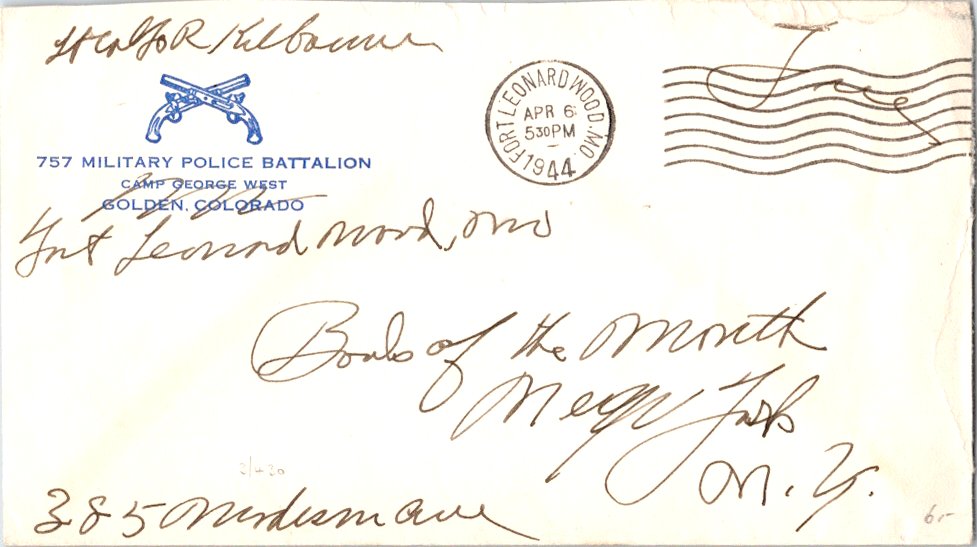 Lt Col Jo R Kilbourne
Free
757 MILITARY POLICE BATTALION
CAMP GEORGE WEST
GOLDEN, COLORADO
FORT LEONARD WOOD, MO.
APR 6
5 30 PM
1944
Fort Leonard Wood, Mo
Book of the Month
New York
N. Y.
385 Madison Ave
6-